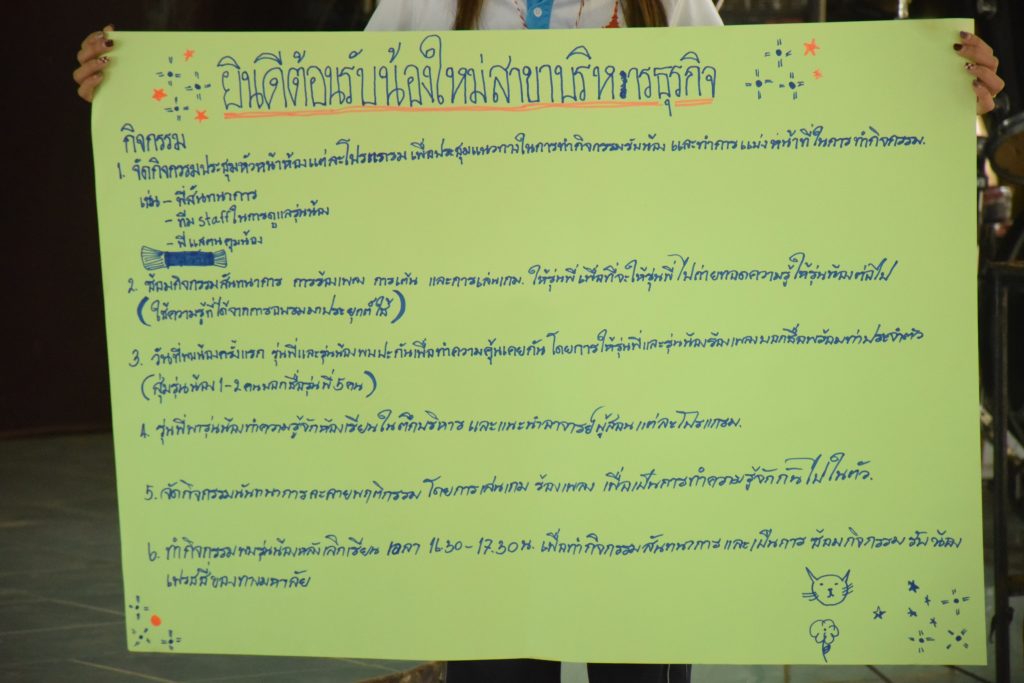 ยินดีต้อนรับน้องใหม่สาขาบริหารธุรกิจ
กิจกรรม
1. จัดกิจกรรมประชุมหัวหน้าห้องแต่ละโปรแกรม เพื่อประชุมแนวทางในการทำกิจกรรมรับน้อง และทำการแบ่งหน้าที่ในการทำกิจกรรม.
เช่น - พี่สันทนาการ
- ทีม staff ในการดูแลรุ่นน้อง
- พี่แสตนคุมน้อง
2. ซ้อมกิจกรรมสันทนาการ การร้องเพลง การเต้น และการเล่นเกม. ให้รุ่นพี่ เพื่อที่จะให้รุ่นพี่ไปถ่ายทอดความรู้ให้รุ่นน้องต่อไป
(ใช้ความรู้ที่ได้จากการอบรมมาประยุกต์ใช้)
3. วันที่พบน้องครั้งแรก รุ่นพี่และรุ่นน้องพบปะกันเพื่อทำความคุ้นเคยกัน โดยการให้รุ่นพี่และรุ่นน้องร้องเพลงบอกชื่อพร้อมท่าประจำตัว
(สุ่มรุ่นน้อง 1-2 คนบอกชื่อรุ่นพี่ 5 คน)
4. รุ่นพี่พารุ่นน้องทำความรู้จักห้องเรียนในตึกบริหาร และแนะนำอาจารย์ผู้สอนแต่ละโปรแกรม.
5. จัดกิจกรรมนันทนาการละลายพฤติกรรม โดยการเล่นเกม ร้องเพลง เพื่อเป็นการทำความรู้จักกันไปในตัว.
6. ทำกิจกรรมพบรุ่นน้องหลังเลิกเรียน เวลา 16.30-17.30 น. เพื่อทำกิจกรรมสันทนาการ และเป็นการ ซ้อมกิจกรรม รับน้อง
เฟรสชี่ของทางมหาลัย